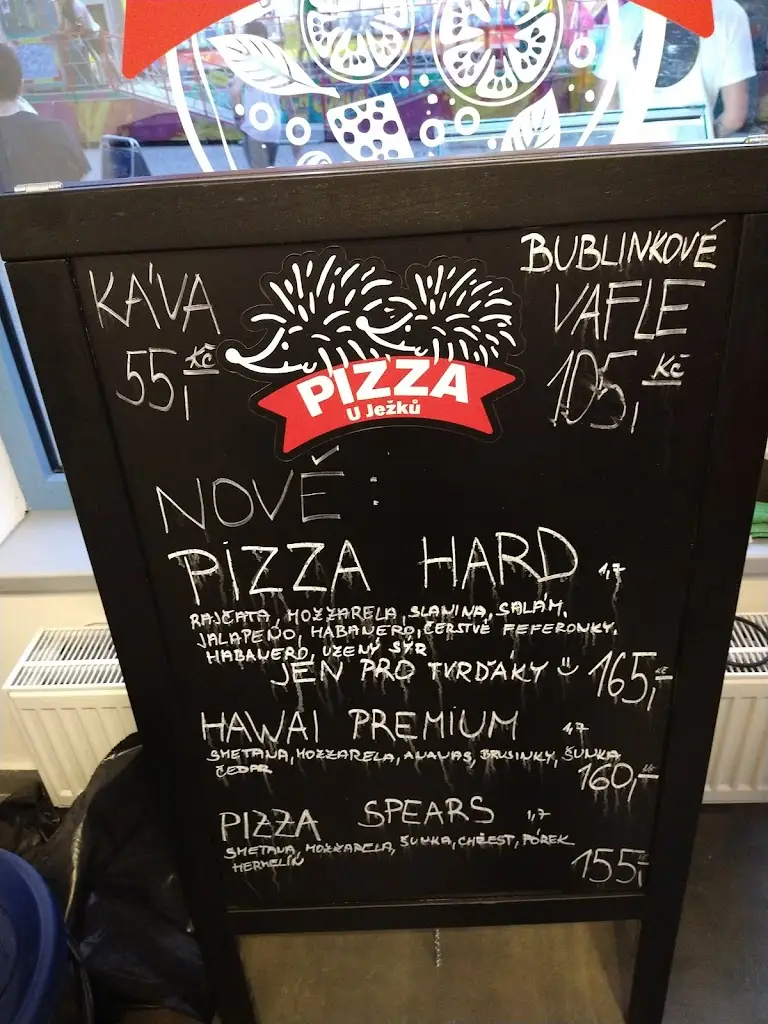 KÁVA
55,- Kč
PIZZA
U Ježků
BUBLINKOVÉ
VAFLE
105,- Kč
NOVĚ :
PIZZA HARD 1,7
RAJČATA, MOZZARELA, SLANINA, SALÁM,
JALAPEŇO, HABANERO, ČERSTVÉ FEFERONKY,
HABANERO, UZENÝ SÝR
JEN PRO TVRĎÁKY 165,- Kč
HAWAI PREMIUM 1,7
SMETANA, MOZZARELA, ANANAS, BRUSINKY, ŠUNKA
ČEDAR 160,- Kč
PIZZA SPEARS 1,7
SMETANA, MOZZARELA, ŠUNKA, CHŘEST, PÓREK
HERMELÍN 155,- Kč